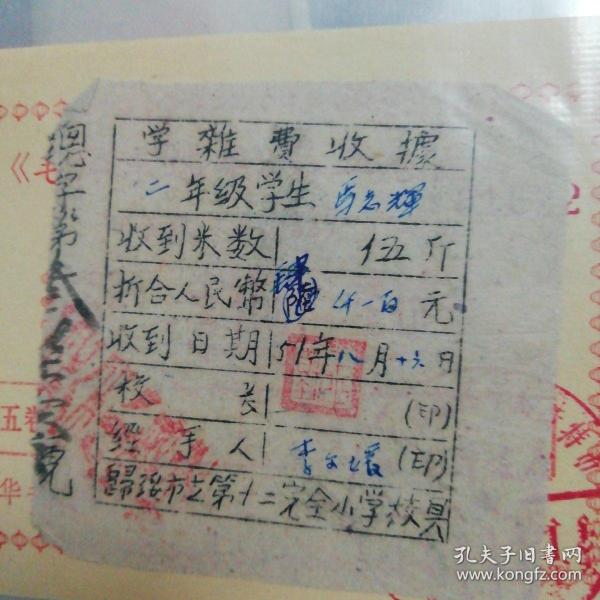 学雜費收據
二年级学生
收到米数 伍斤
折合人民幣 千一百元
收到日期 51年八月十六日
校長 (印)
经手人 李文環 (印)
歸綏市立第十二完全小学校具
總字第
《毛
五卷
华
孔夫子旧书网
www.kongfz.com